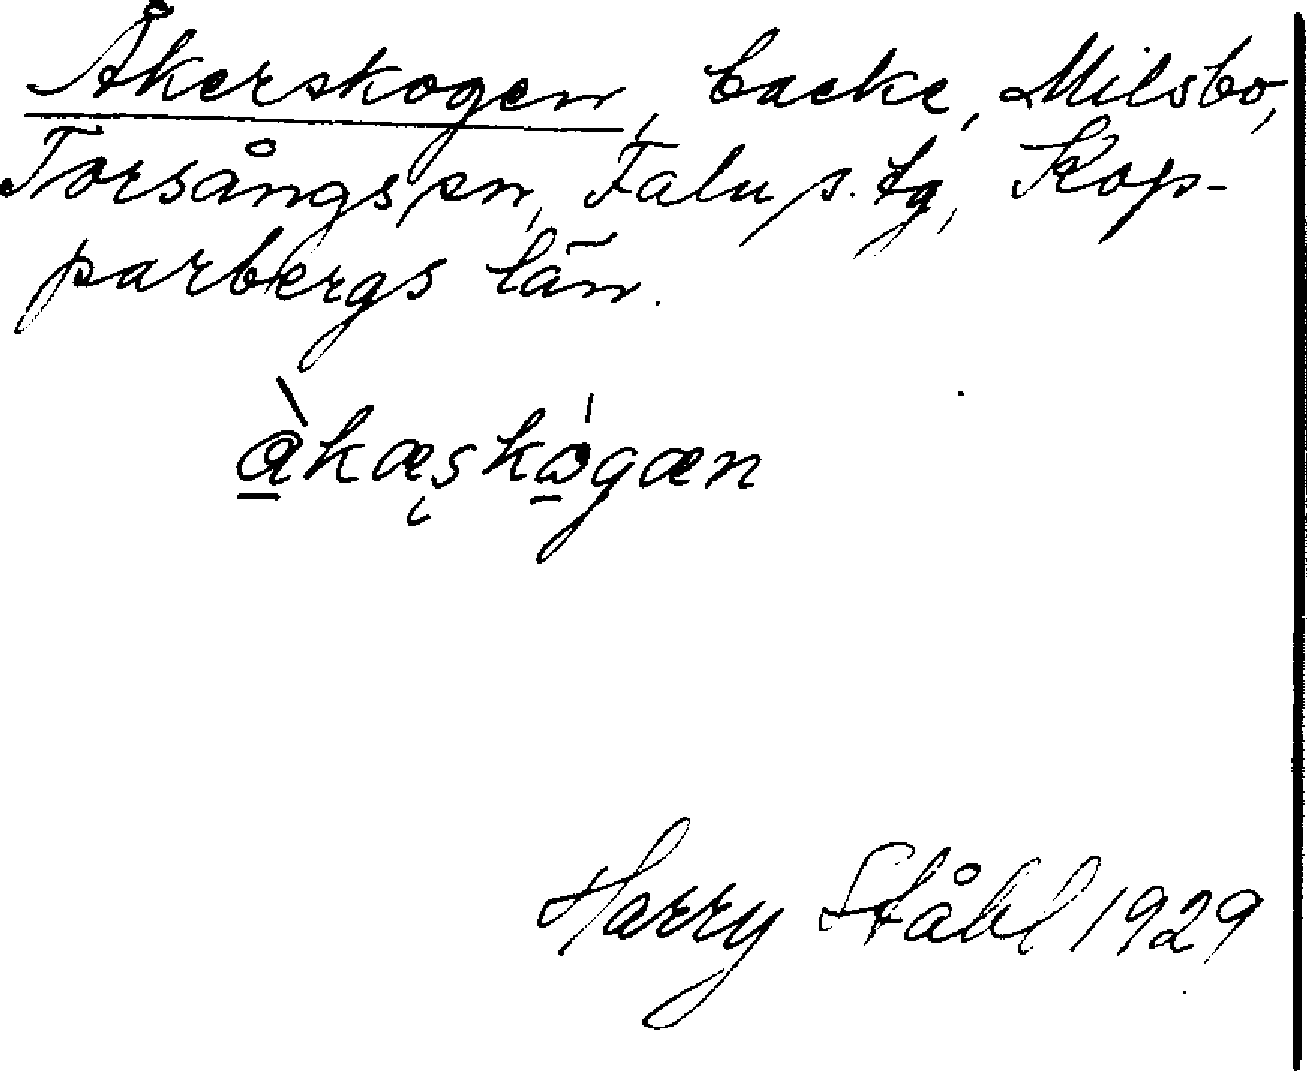 Åkerskogen, backe, Milsbo,
Torsångs sn, Falu s. tg, Kop-
parbergs län.
å̀kæskó̠gæn
Harry Ståhl 1929